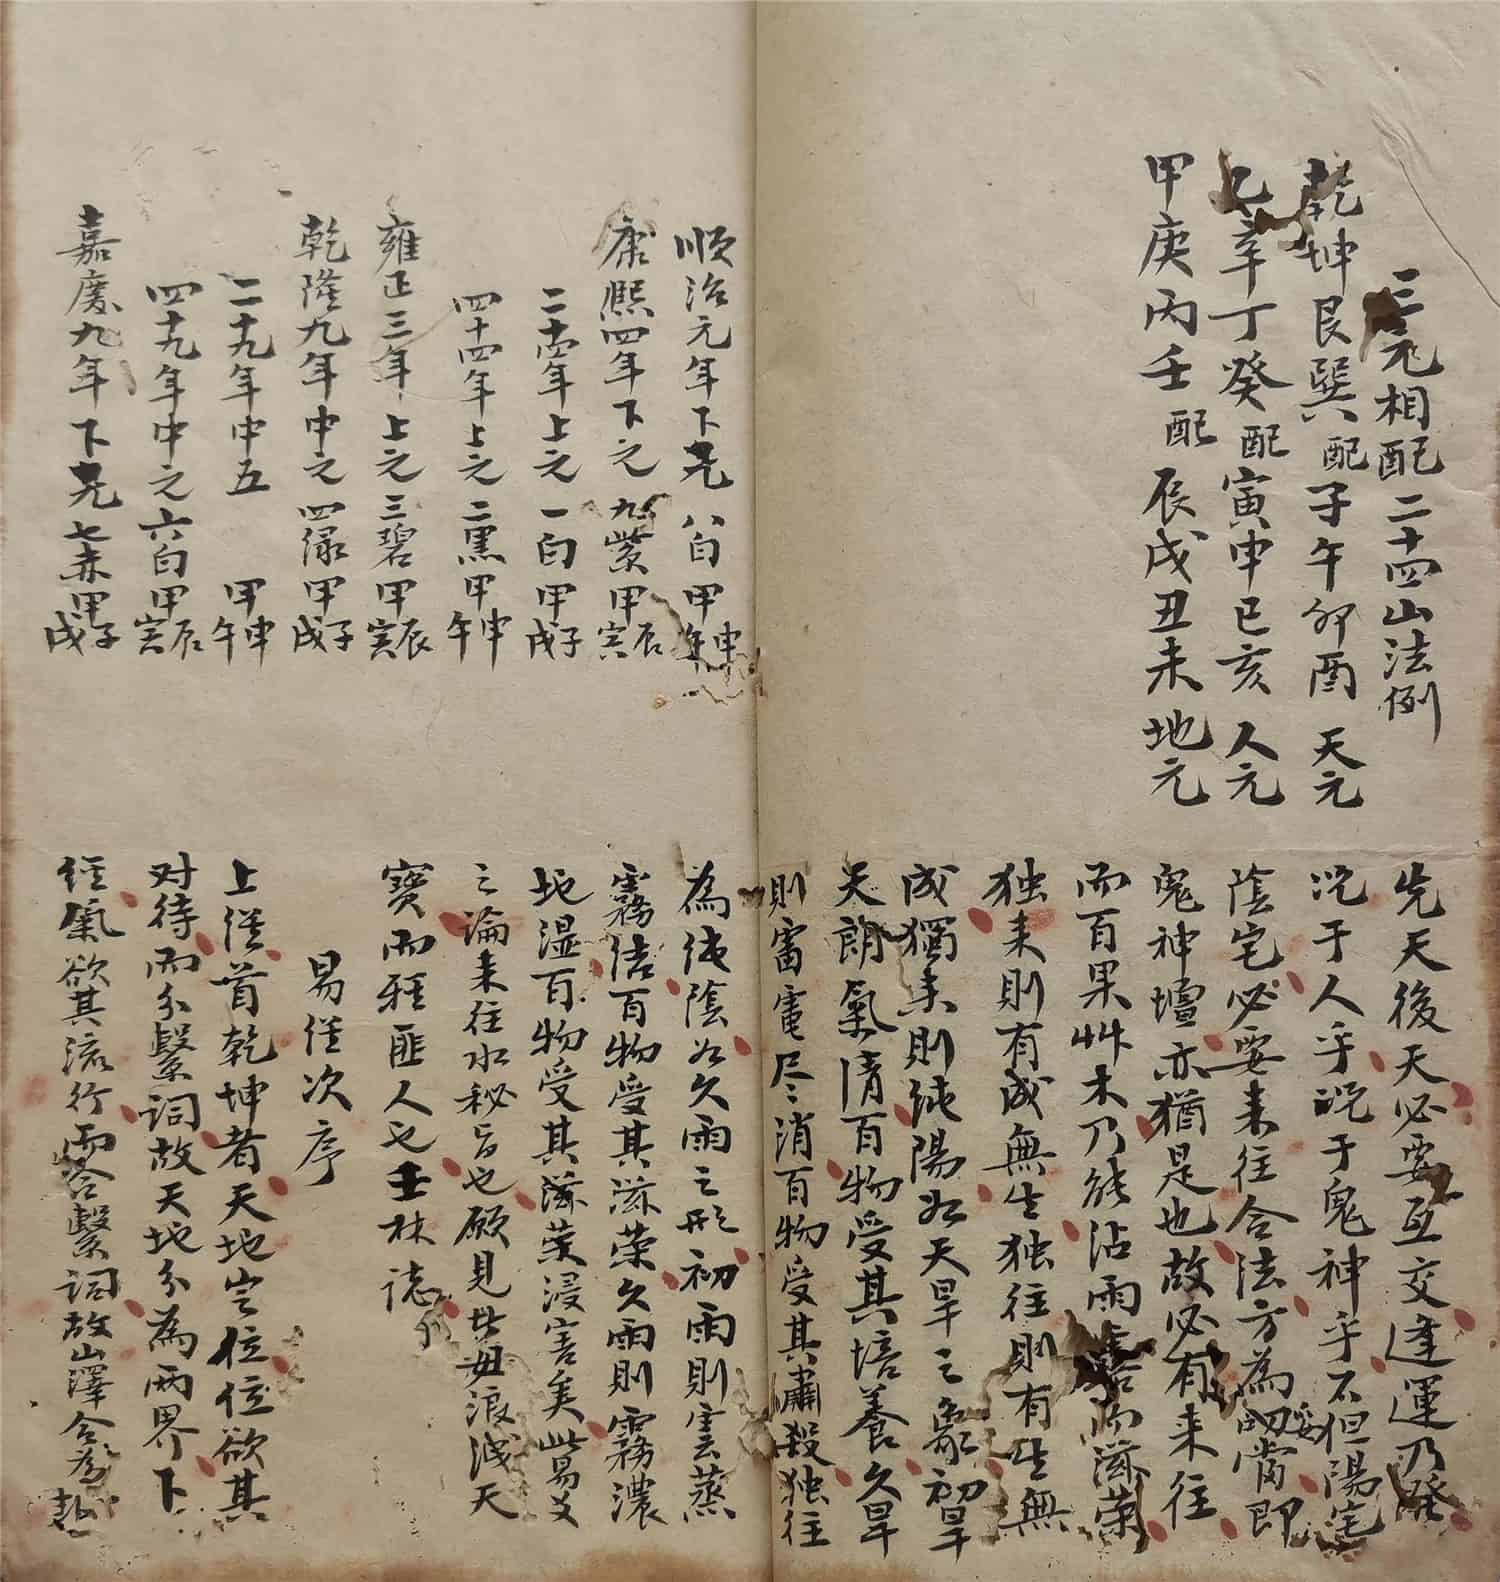 三元相配二十四山法例
乾坤艮巽配子午卯酉天元
乙辛丁癸配寅申巳亥人元
甲庚丙壬配辰戌丑未地元
順治元年下元八白甲申午
康熙四年下之九紫甲辰寅
二十四年上之一白甲子戌
四十四年上之二黑甲申午
雍正三年上之三碧甲辰寅
乾隆九年中之四綠甲子戌
二十九年中五甲申午
四十九年中之六白甲辰寅
嘉慶九年下元七赤甲子戌
先天後天必要互交逢運乃發
况于人乎况于鬼神乎不但陽宅
陰宅必要来往合法方為妥當即
鬼神壇亦猶是也故必有来往
而百果艸木乃能沾雨露而滋荣
独来則有成無生独往則有生無
成獨来則純陽如天旱之象初旱
天朗氣清百物受其培養久旱
則雷電尽消百物受其肅殺独往
為純陰如久雨之形初雨則雲蒸
霧結百物受其滋荣久雨則霧濃
地湿百物受其滋荣浸害矣此易爻
之論来往水秘旨也願見此毋浪洩天
寶而程匪人也 壬林誌
易経次序
上経首乾坤者天地定位位欲其
对待而分繫詞故天地分為兩界下
経氣欲其流行而合繫詞故山澤合為